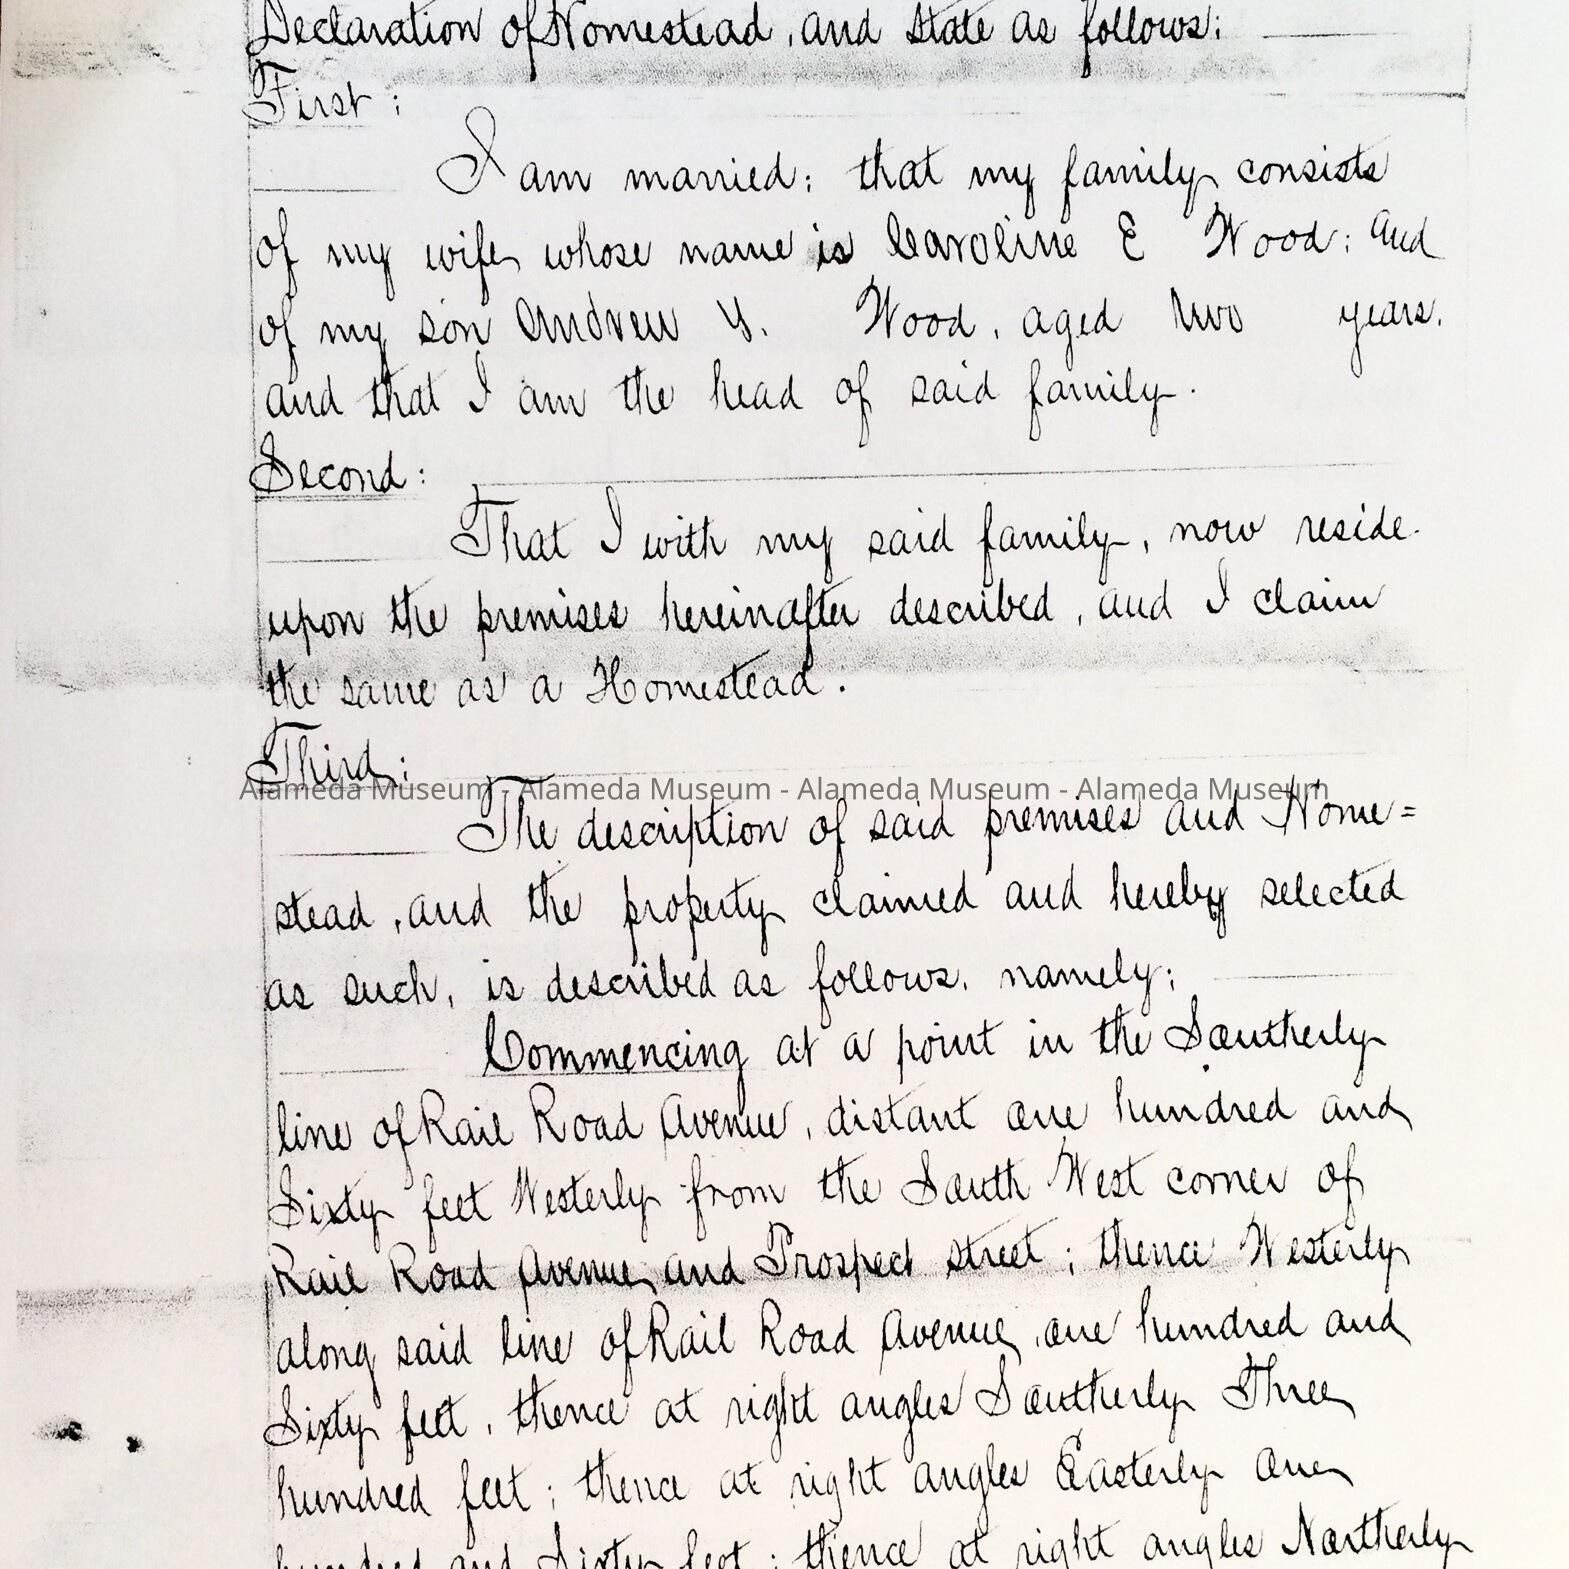 Declaration of Homestead, and state as follows:
First:
I am married; that my family consists
of my wife whose name is Caroline E Wood; and
of my son Andrew Y. Wood, aged two years.
and that I am the head of said family.
Second:
That I with my said family, now reside
upon the premises hereinafter described, and I claim
the same as a Homestead.
Third:
Alameda Museum - Alameda Museum - Alameda Museum - Alameda Museum
The description of said premises and Home=
stead, and the property claimed and hereby selected
as such, is described as follows, namely;
Commencing at a point in the Southerly
line of Rail Road Avenue, distant one hundred and
Sixty feet Westerly from the South West corner of
Rail Road Avenue and Prospect street; thence Westerly
along said line of Rail Road Avenue, one hundred and
Sixty feet, thence at right angles Southerly Three
hundred feet; thence at right angles Easterly one
hundred and Sixty feet; thence at right angles Northerly